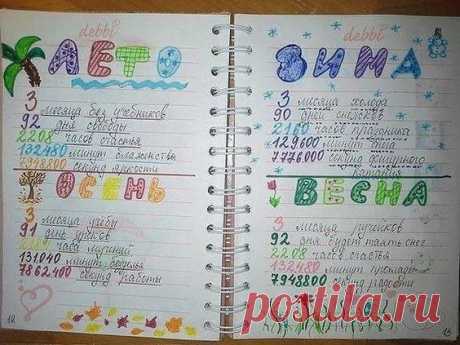 debbi
ЛЕТО
3 месяца без учебников
92 дня свободы
2208 часов счастья
132480 минут блаженства
7948800 секунд яркости
ОСЕНЬ
3 месяца учёбы
91 день уроков
часа мучений
131040 минут веселья
7862400 секунд работы
12
debbi
ЗИМА
3 месяца холода
90 дней снежков
2160 часов праздника
129600 минут снега
7776000 секунд
катания
ВЕСНА
3 месяца ручейков
92 дня будет таять снег
2208 часов счастья
132480 минут прохлады
7948800 секунд радости
13
postila.ru